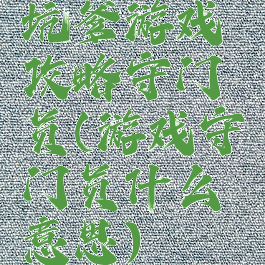 坑爹游戏
攻略守门
员(游戏守
门员什么
意思)